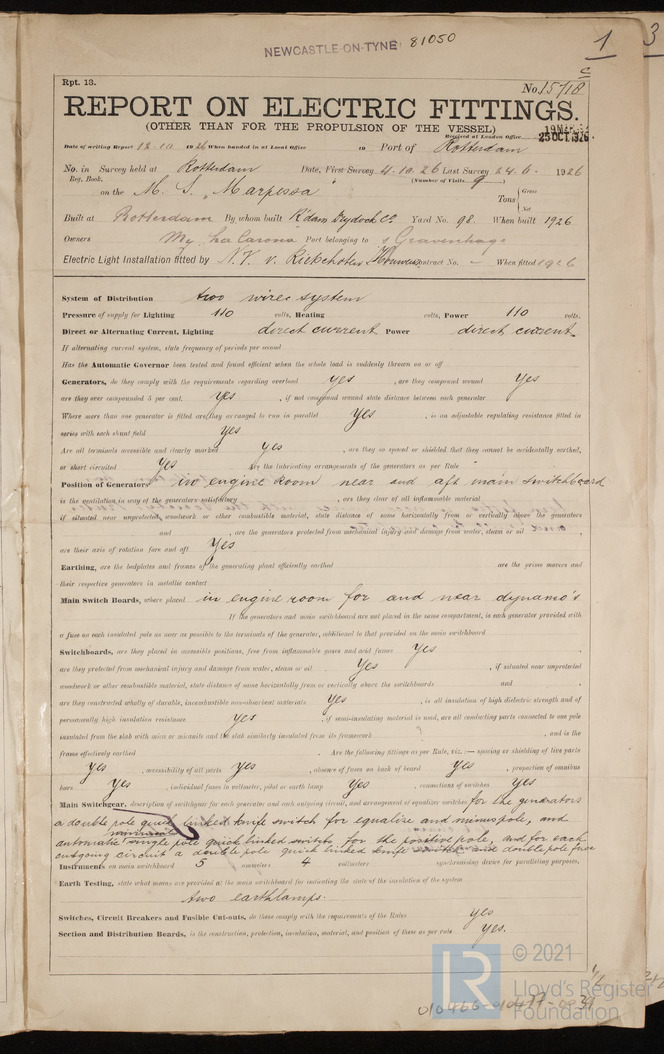 NEWCASTLE-ON-TYNE 81050
1 3
Rpt. 13. No. 15718
REPORT ON ELECTRIC FITTINGS.
(OTHER THAN FOR THE PROPULSION OF THE VESSEL)
Received at London Office
25 OCT 1926
Date of writing Report 12.10 1926 When handed in at Local Office 19 Port of Rotterdam
No. in Survey held at Rotterdam Date, First Survey 4.10.26 Last Survey 24.6. 1926
Reg. Book. (Number of Visits 9)
on the M. S. "Marpessa" Tons { Gross
Net
Built at Rotterdam By whom built R'dam Drydock Co. Yard No. 98. When built 1926
Owners My. La Corona Port belonging to s Gravenhage
Electric Light Installation fitted by N.V. v. Rietschoten & Houwens Contract No. - When fitted 1926
System of Distribution two wires system
Pressure of supply for Lighting 110 volts, Heating volts, Power 110 volts.
Direct or Alternating Current, Lighting direct current Power direct current.
If alternating current system, state frequency of periods per second
Has the Automatic Governor been tested and found efficient when the whole load is suddenly thrown on or off
Generators, do they comply with the requirements regarding overload yes , are they compound wound yes
are they over compounded 5 per cent. yes , if not compound wound state distance between each generator
Where more than one generator is fitted are they arranged to run in parallel yes , is an adjustable regulating resistance fitted in
series with each shunt field yes
Are all terminals accessible and clearly marked yes , are they so spaced or shielded that they cannot be accidentally earthed,
or short circuited yes Are the lubricating arrangements of the generators as per Rule
Position of Generators in engine room near and aft main switchboard
is the ventilation in way of the generators satisfactory , are they clear of all inflammable material
if situated near unprotected woodwork or other combustible material, state distance of same horizontally from or vertically above the generators
and , are the generators protected from mechanical injury and damage from water, steam or oil
are their axis of rotation fore and aft yes
Earthing, are the bedplates and frames of the generating plant efficiently earthed are the prime movers and
their respective generators in metallic contact
Main Switch Boards, where placed in engine room for and near dynamo's
If the generators and main switchboard are not placed in the same compartment, is each generator provided with
a fuse on each insulated pole as near as possible to the terminals of the generator, additional to that provided on the main switchboard
Switchboards, are they placed in accessible positions, free from inflammable gases and acid fumes yes
are they protected from mechanical injury and damage from water, steam or oil yes , if situated near unprotected
woodwork or other combustible material, state distance of same horizontally from or vertically above the switchboards and
are they constructed wholly of durable, incombustible non-absorbent materials yes , is all insulation of high dielectric strength and of
permanently high insulation resistance yes , if semi-insulating material is used, are all conducting parts connected to one pole
insulated from the slab with mica or micanite and the slab similarly insulated from its framework , and is the
frame effectively earthed . Are the following fittings as per Rule, viz.:— spacing or shielding of live parts
yes , accessibility of all parts yes , absence of fuses on back of board yes , proportion of omnibus
bars yes , individual fuses to voltmeter, pilot or earth lamp yes , connections of switches yes
Main Switchgear, description of switchgear for each generator and each outgoing circuit, and arrangement of equalizer switches for the generators
a double pole quick linked knife switch for equalize and minus pole, and
automatic single pole quick linked switch for the positive pole, and for each
outgoing circuit a double pole quick linked knife switch and double pole fuse
Instruments on main switchboard 5 ammeters 4 voltmeters synchronising device for paralleling purposes.
Earth Testing, state what means are provided at the main switchboard for indicating the state of the insulation of the system
two earthlamps.
Switches, Circuit Breakers and Fusible Cut-outs, do these comply with the requirements of the Rules yes
Section and Distribution Boards, is the construction, protection, insulation, material, and position of these as per rule yes.
© 2021
LR
Lloyd's Register
Foundation